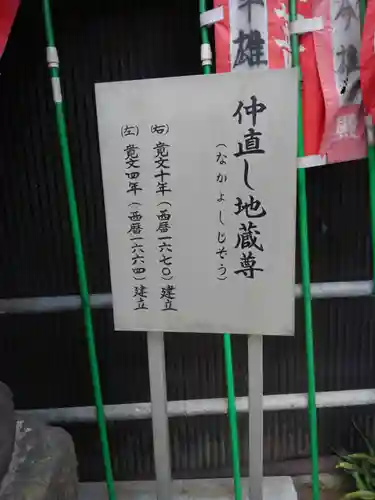 仲直し地蔵尊
（なかよしじぞう）
（右）寛文十年（西暦一六七〇）建立
（左）寛文四年（西暦一六六四）建立
雄